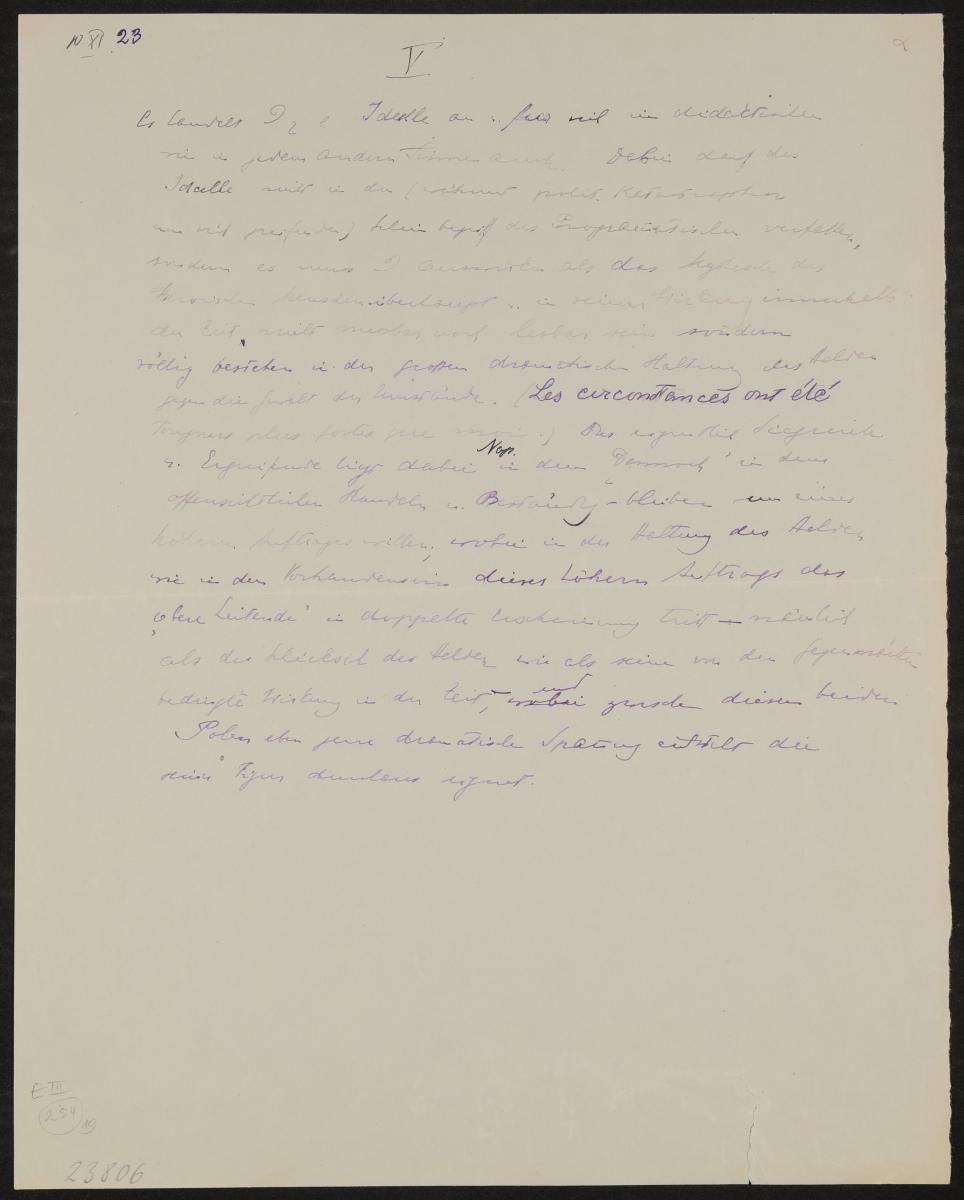 10 XI 23
V
α
Es handelt Ideelle an u. zwar im didaktischen
wie in jedem andern Sinne auch. Dabei darf das
Ideelle nicht in der (während polit. Katastrophen
) des Propädeutischen verfallen,
sondern es muss als das des
Heroischen überhaupt u. in seiner Wirkung innerhalb
der Zeit, nicht messbar noch lesbar sein sondern
völlig bestehen in der grossen dramatischen Haltung des Helden
gegen die Gewalt der Umstände. (Les circonstances ont été
toujours plus fortes que moi.) Das eigentlich Siegreiche
u. Ergreifende liegt dabei in dem "Dennoch" in dem
Nap.
offensichtlichen Handeln u. Beständig-bleiben um eines
höhern Auftrages willen, wobei in der Haltung des Helden,
wie in dem Vorhandensein dieses höhern Auftrags das
'obere Leitende' in doppelte Erscheinung tritt — nämlich
als das Schicksal des Helden wie als seine von den Gegenmächten
bedingte Wirkung in der Zeit, und zwischen diesen beiden
Polen eben jene dramatische Spannung enthält die
seine Figur durchaus eignet.
E III
254
19
23806